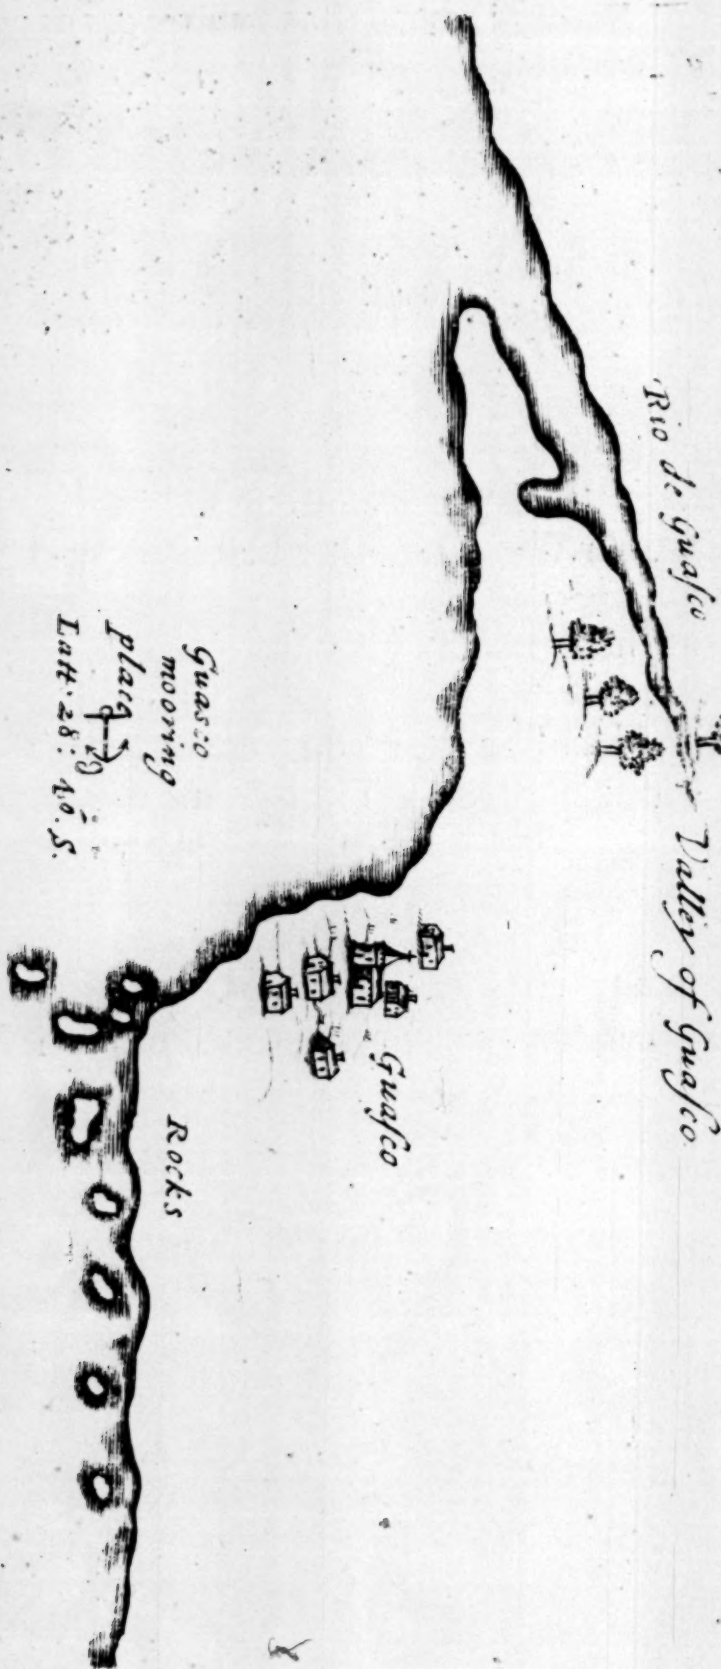 Rio de Guaſco
Valley of Guaſco
Guaſco
Rocks
Guasco
mooring
place
Latt. 28: 10. S.